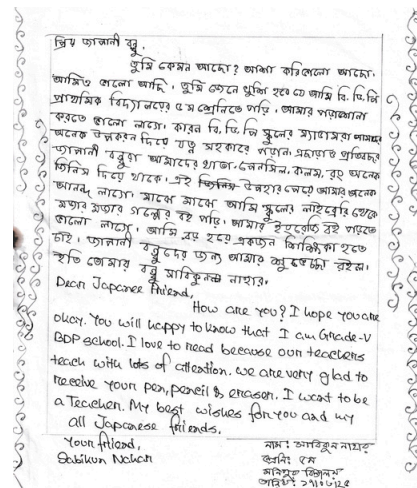 প্রিয় জাপানী বন্ধু,
তুমি কেমন আছো? আশা করি ভালো আছো.
আমিও ভালো আছি. তুমি জেনে খুশি হবে যে আমি বি. ডি. পি
প্রাথমিক বিদ্যালয়ের ৫ম শ্রেনিতে পড়ি. আমার পড়াশোনা
করতে ভালো লাগে. কারন বি. ডি. পি স্কুলের ম্যাডামরা আমাদের
অনেক উপকরন দিয়ে যত্ন সহকারে পড়ান. এছাড়াও প্রতিবছর
জাপানী বন্ধুরা আমাদের খাতা, পেনসিল, কলম, রং অনেক
জিনিস দিয়ে থাকে. এই উপহার পেয়ে আমার অনেক
আনন্দ লাগে. মাঝে মাঝে আমি স্কুলের লাইব্রেরি থেকে
মজার মজার গল্পের বই পড়ি. আমার ইংরেজি বই পড়তে
ভালো লাগে. আমি বড় হয়ে একজন শিক্ষিকা হতে
চাই. জাপানী বন্ধুদের জন্য আমার শুভেচ্ছা রইল.
ইতি তোমার বন্ধু সাবিকুন নাহার.
Dear Japanee Friend,
How are you? I hope you are
okay. You will happy to know that I am Grade-V
BDP school. I love to read because our teachers
teach with lots of attention. we are very glad to
receive your pen, pencil & erasor. I want to be
a Teacher. My best wishes for you and my
all Japanese friends.
Your friend,
Sabikun Nahar
নাম: সাবিকুন নাহার
শ্রেনি: ৫ম